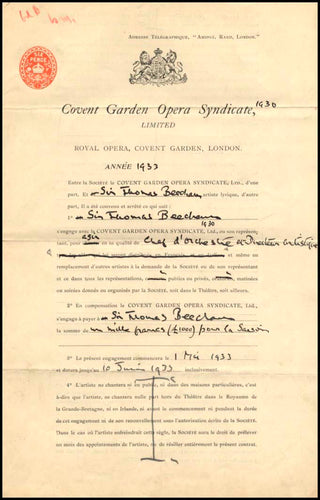 ADRESSE TÉLÉGRAPHIQUE, "AMIDST, RAND, LONDON."
SIX
PENCE
Covent Garden Opera Syndicate, 1930
LIMITED
ROYAL OPERA, COVENT GARDEN, LONDON.
ANNÉE 1933
Entre la SOCIÉTÉ le COVENT GARDEN OPERA SYNDICATE, LTD., d'une
part. Et Sir Thomas Beecham artiste lyrique, d'autre
part, Il a été convenu et arrêté ce qui suit:
1° Sir Thomas Beecham
1930
s'engage avec le COVENT GARDEN OPERA SYNDICATE, LTD., ou son représen-
tant, pour en sa qualité de Chef d'orchestre et Directeur artistique
et même au
remplacement d'autres artistes à la demande de la SOCIÉTÉ ou de son représentant
et ce dans tous les représentations, publics ou privés, matinées
ou soirées donnés ou organisés par la SOCIÉTÉ, soit dans le Théâtre, soit ailleurs.
2° En compensation le COVENT GARDEN OPERA SYNDICATE, LTD.,
s'engage à payer à Sir Thomas Beecham
la somme de mille francs (£1000) pour la Saison
3° Le présent engagement commencera le 1 Mai 1933
et durera jusqu'au 10 Juin 1933 inclusivement.
4° L'artiste ne chantera ni en public, ni dans des maisons particulières, c'est
à-dire que l'artiste, ne chantera nulle part hors du Théâtre dans le Royaume de
la Grande-Bretagne, ni en Irlande, ni avant le commencement ni pendant la durée
de cet engagement ni de son renouvellement sans l'autorisation écrite de la SOCIÉTÉ.
Dans le cas où l'artiste enfreindrait cette règle, la SOCIÉTÉ aura le droit de prélever
un mois des appointements de l'artiste, ou de résilier entièrement le présent contrat.